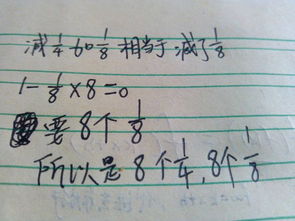 减1/4加1/8相当于减了1/8
1-1/8×8=0
要8个1/8
所以是8个1/4,8个1/8